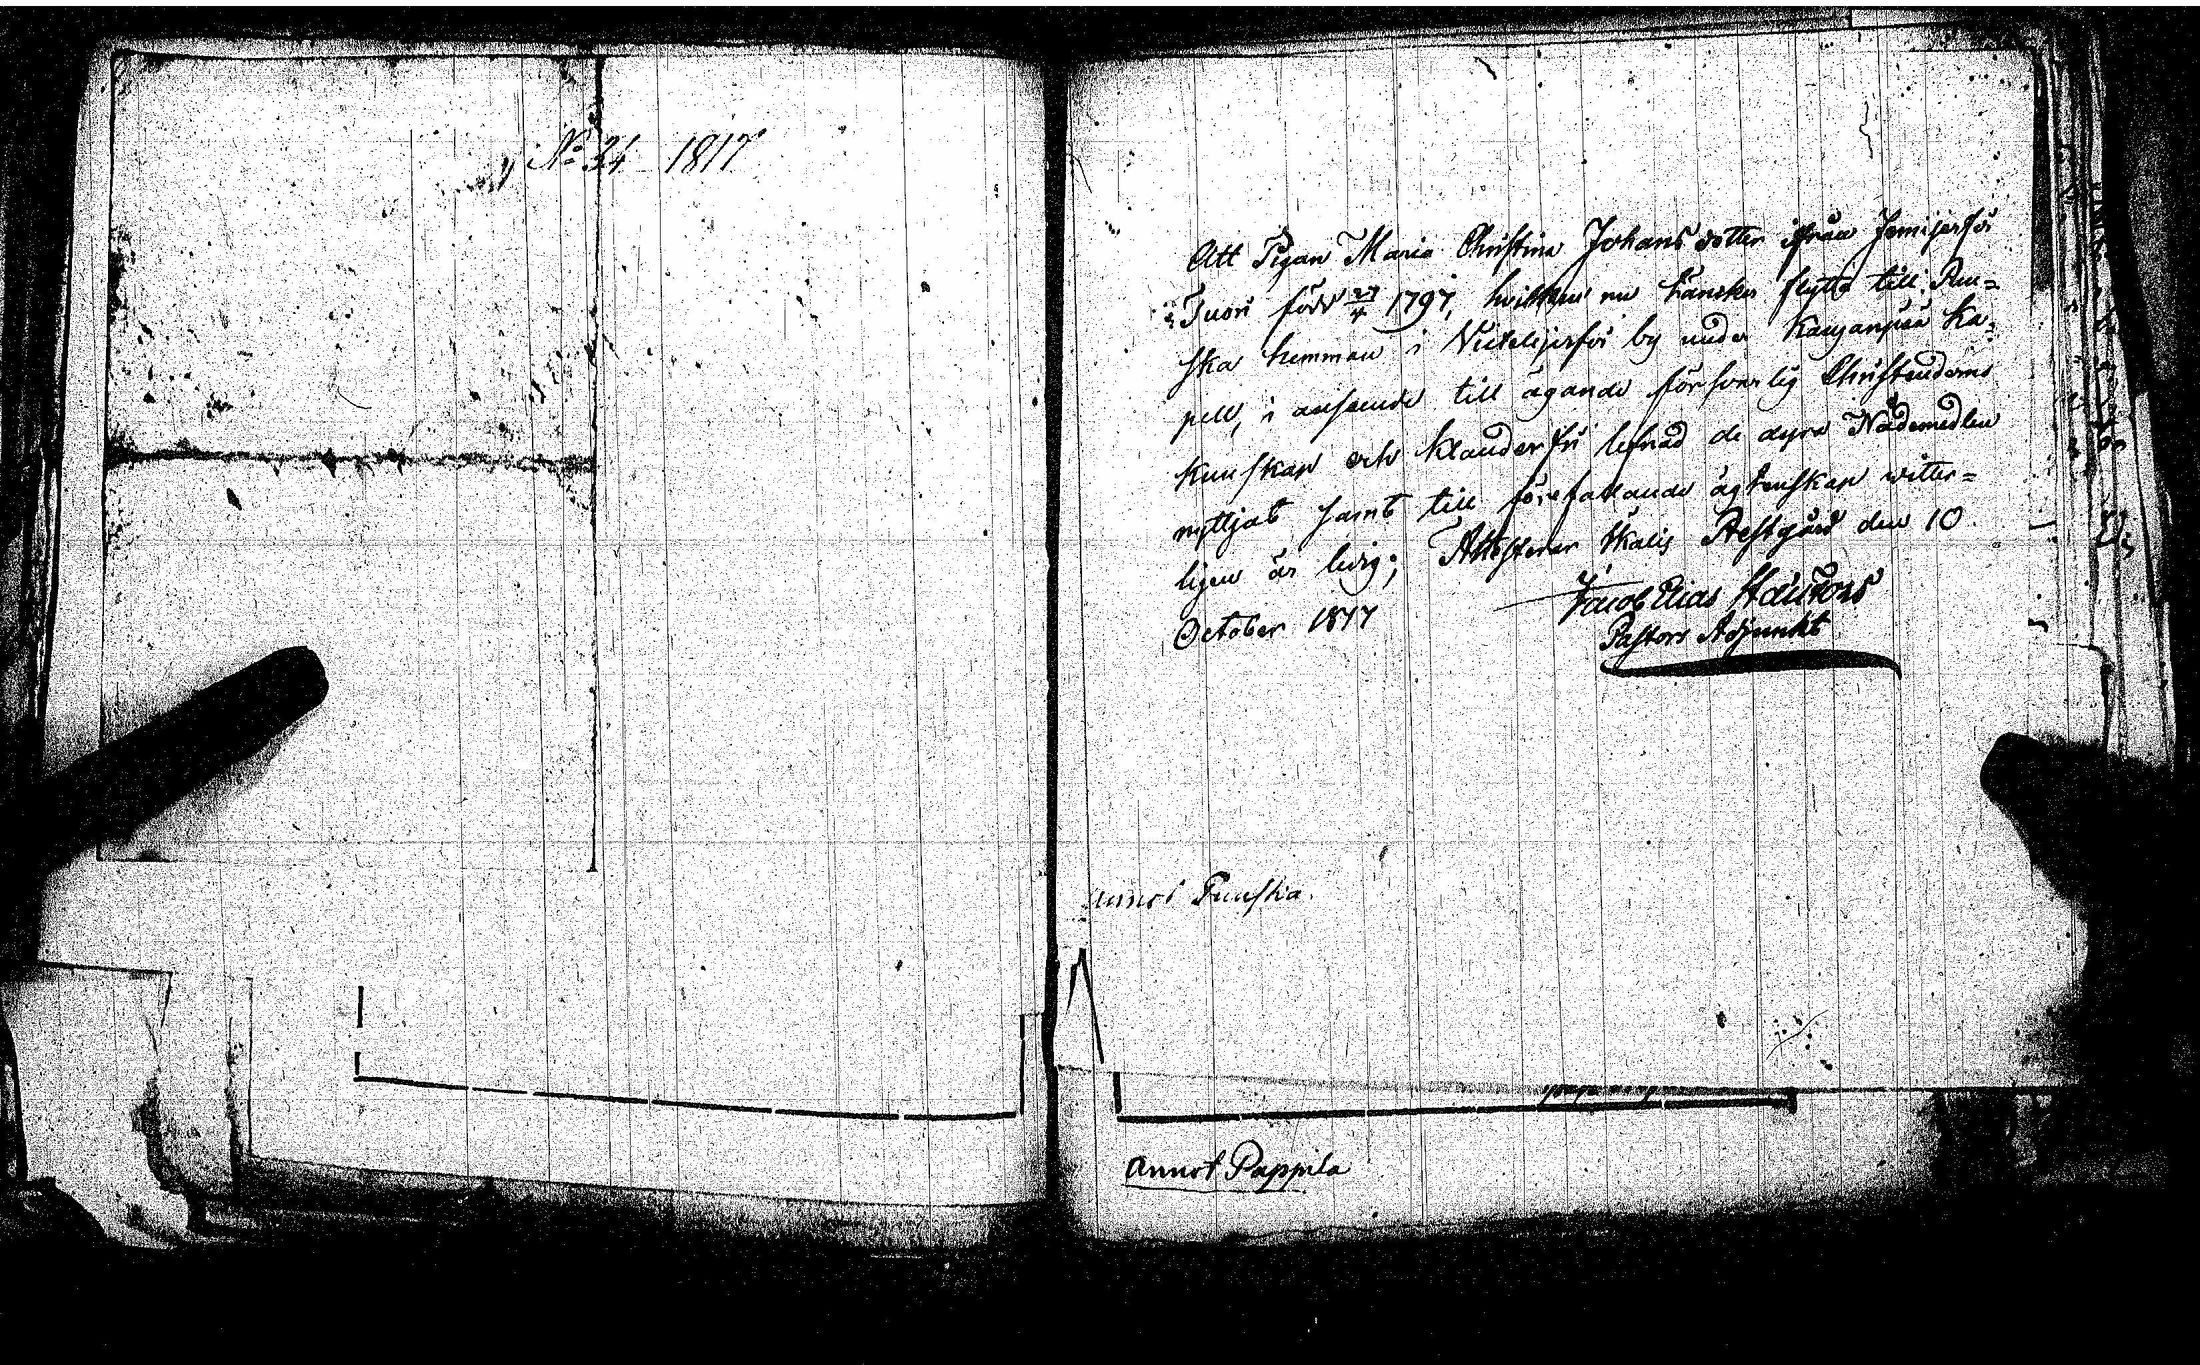 No 34 1817
Att Pigan Maria Christina Johansdotter ifrån Jemijerfvi
Tuori född 27/4 1797, hvilken nu tänker flytta till Pun=
ska hemman i Vickelijerfvi by under Kangangää Ka=
pell, i anseende till ägande försvarlig Christendoms
kunskap och klanderfri lefnad de dyra Nådemedlen
nyttjat samt till förefallande ägtenskap witter=
ligen är ledig; Attesterar Ikalis Prestgård den 10
October 1817
Jacob Elias
Pastors Adjunkt
annot Punska.
annot Pappila